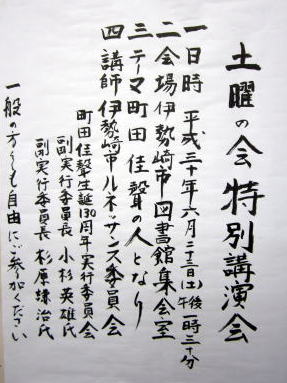 土曜の会特別講演会
一日時 平成三十年六月二十三日(土)午後一時三十分
二会場伊勢崎市図書館集会室
三テーマ町田佳聲の人となり
四講師伊勢崎市ルネッサンス委員会
町田佳聲生誕130周年実行委員会
副実行委員長小杉英雄氏
副実行委員長杉原課治氏
一般の方々も自由にご参加ください